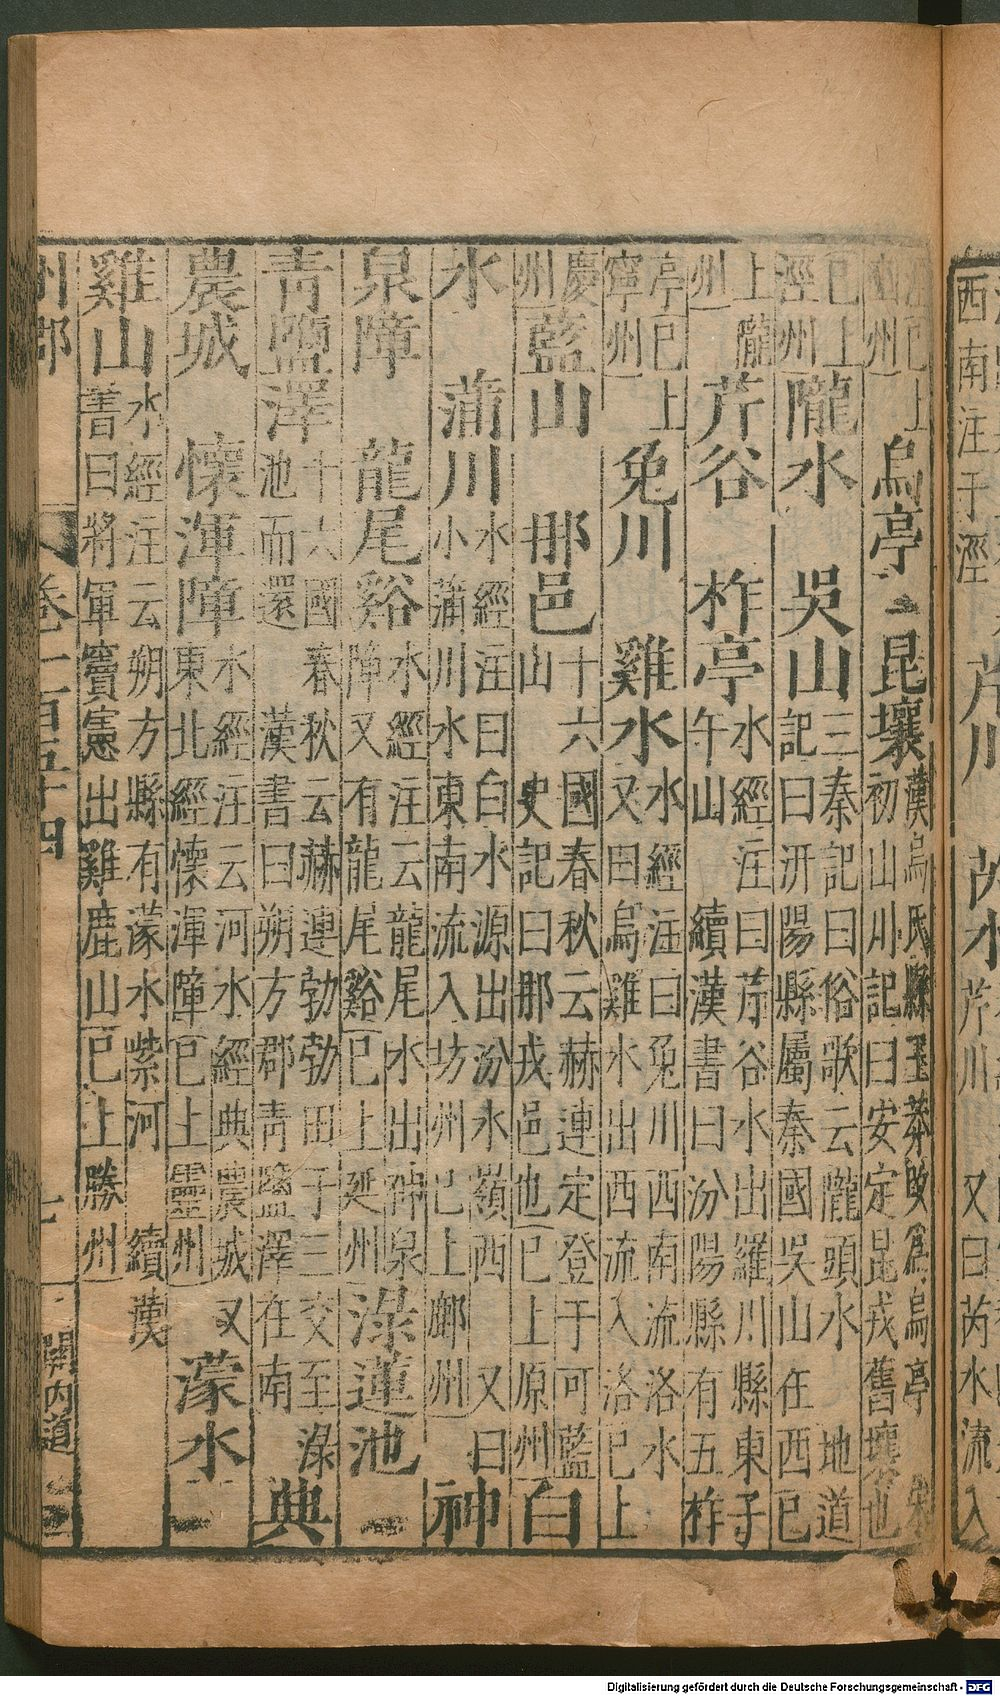 西南注于涇 芹川 芮水 芹川 又曰芮水流入
已上
州 烏亭 昆壤 漢烏氏縣王莽改爲烏亭 宋
初山川記曰安定昆戎舊壤也
已上
涇州 隴水 吳山 三秦記曰俗歌云隴頭水 地道
記曰汧陽縣屬秦國吳山在西已
上隴
州 芹谷 柞亭 水經注曰芹谷水出羅川縣東子
午山 續漢書曰汾陽縣有五柞
亭已上
寧州 兔川 雞水 水經注曰兔川西南流洛水
又曰烏雞水出西流入洛已上
慶
州 藍山 那邑 十六國春秋云赫連定登于可藍
山 史記曰那戎邑也已上原州 白
水 蒲川 水經注曰白水源出汾水嶺西 又曰
小蒲川水東南流入坊州已上鄜州 神
泉障 龍尾谿 水經注云龍尾水出神泉
障又有龍尾谿已上延州 淥蓮池
青鹽澤 十六國春秋云赫連勃勃田于三交至淥
池而還 漢書曰朔方郡青鹽澤在南 典
農城 懷渾障 水經注云河水經典農城又
東北經懷渾障已上靈州 濛水
雞山 水經注云朔方縣有濛水紫河 續漢
書曰將軍竇憲出雞鹿山已上勝州
州郡 卷一百五十四 七 關内道
Digitalisierung gefördert durch die Deutsche Forschungsgemeinschaft - DFG